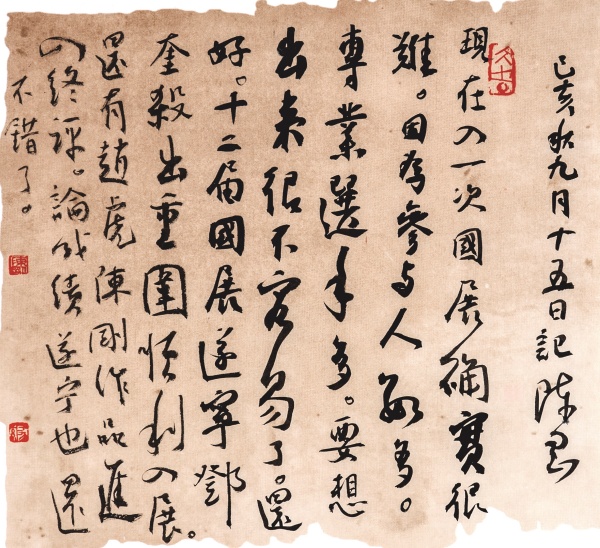 己亥秋九月十五日記 陳
現在入一次國展確實很
難。因為參与人數多。
專業選手多。要想
出来很不容易了。還
好。十二届國展遂寧鄧
奎殺出重圍順利入展。
還有趙虎陳剛作品進
入終評。論成績遂宁也還
不錯了。